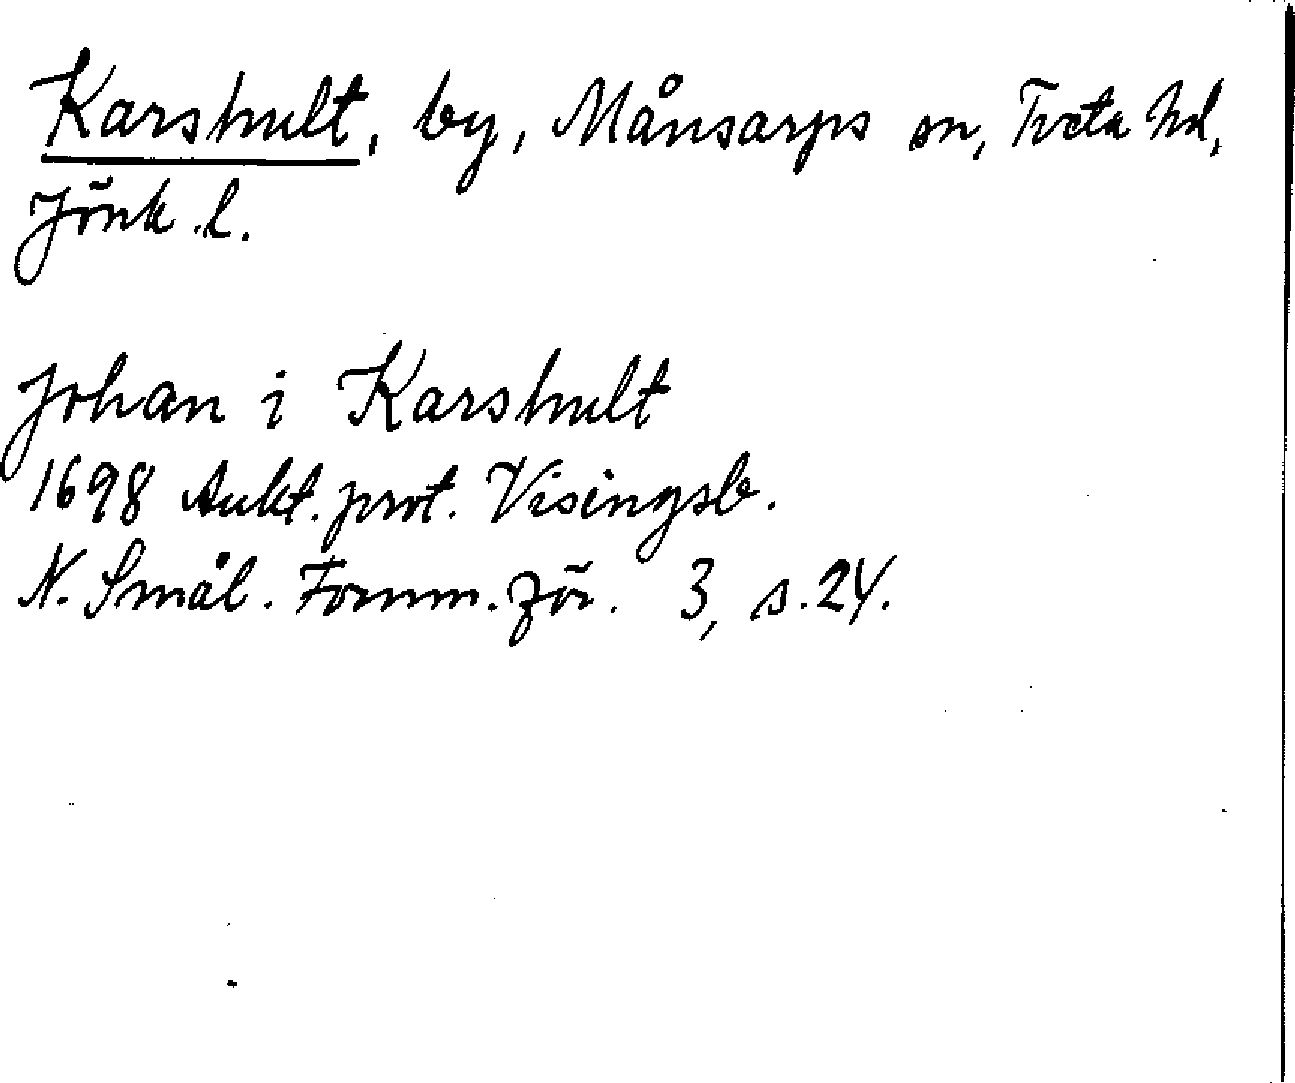 Karshult, by, Månsarps sn, Tveta hd,
Jönk. l.
Johan i Karshult
1698 Aukt. prot. Visingsb.
N. Smål. Fornm. för. 3, s. 24.